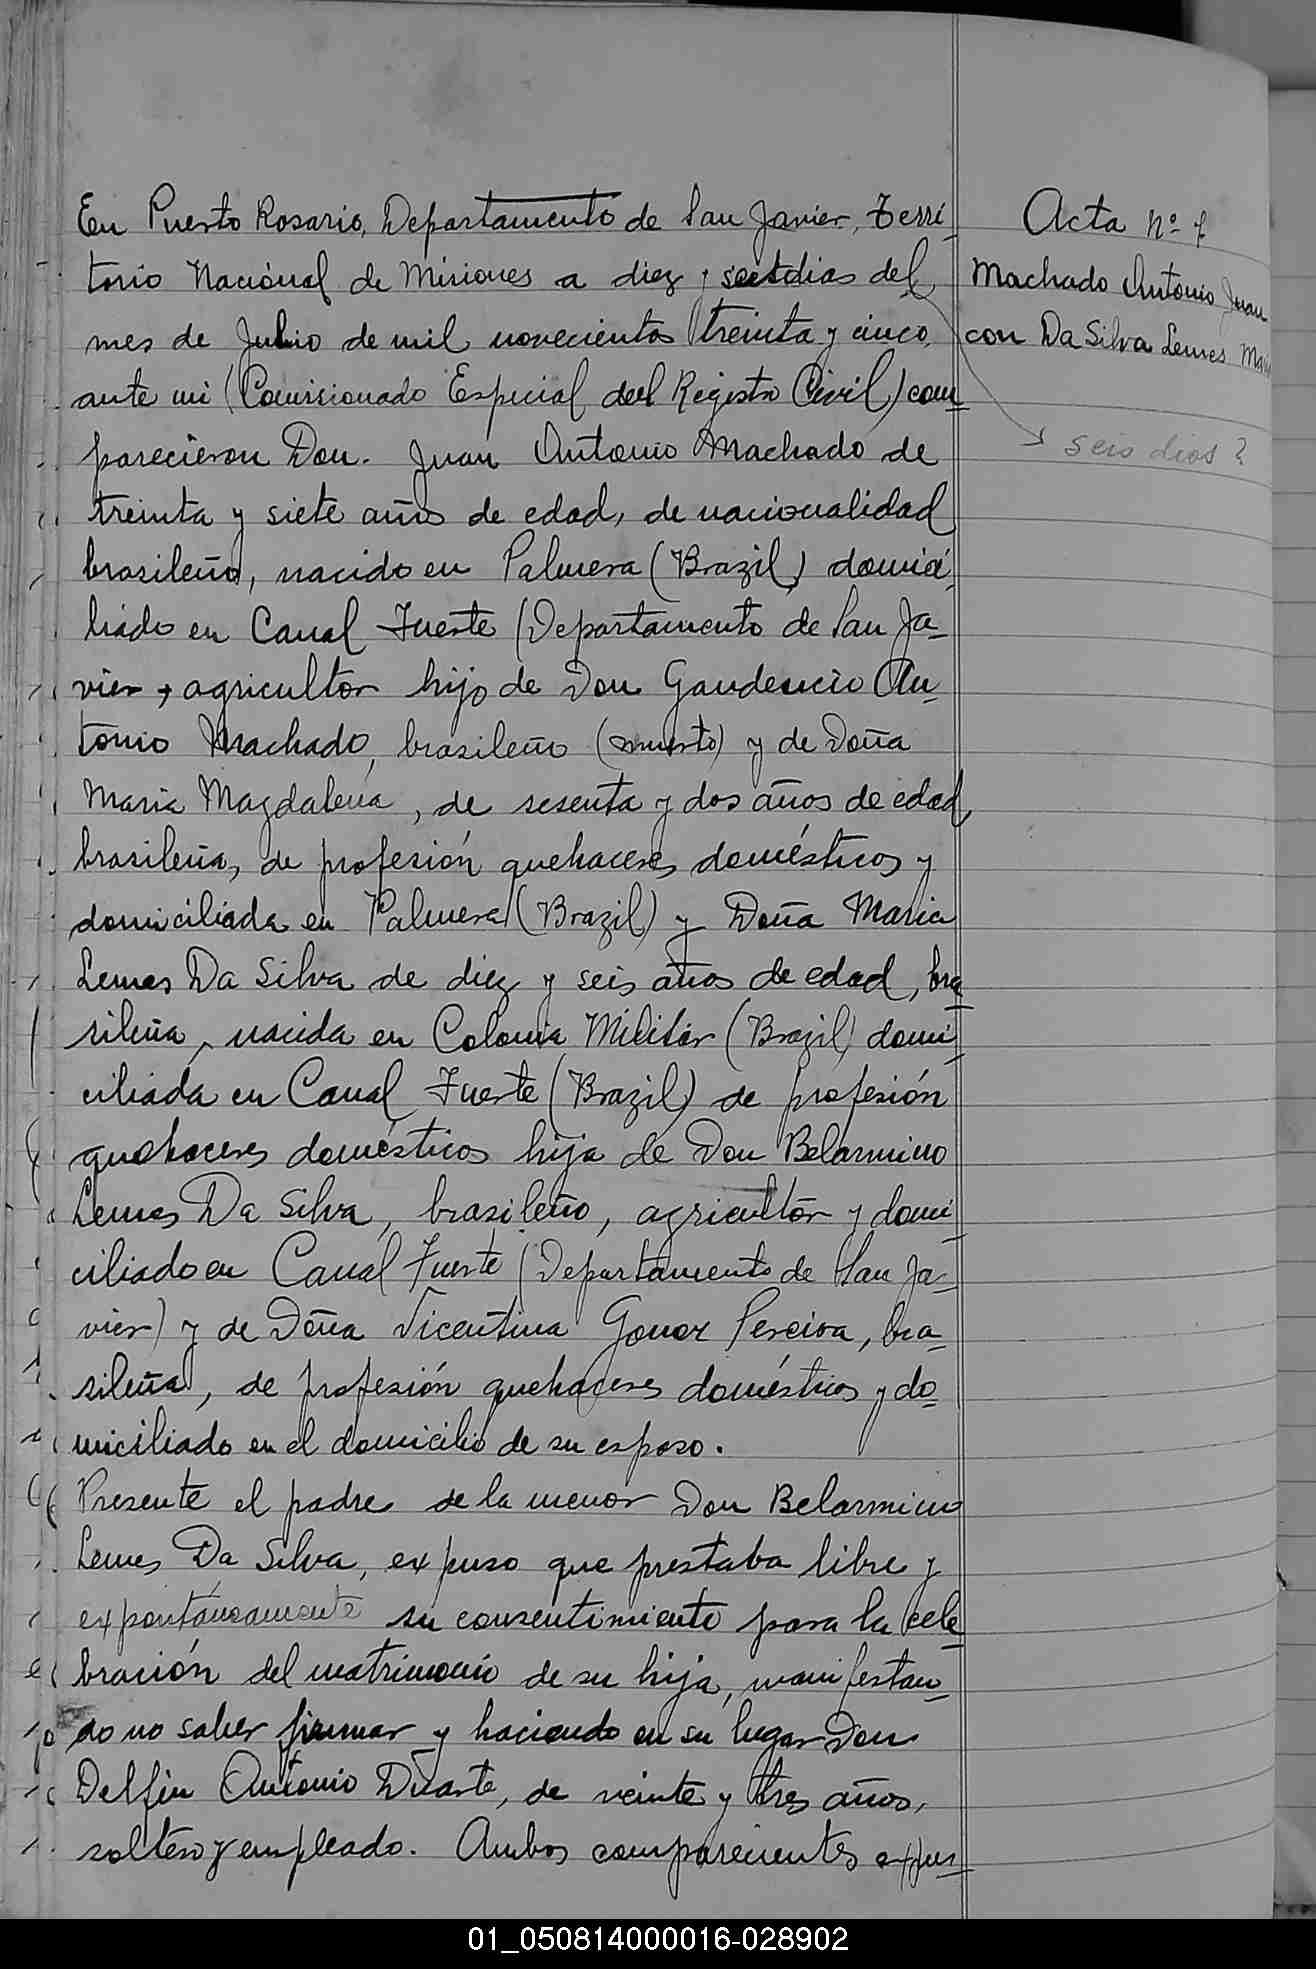 En Puerto Rosario, Departamento de San Javier, Terri
torio Nacional de Misiones a diez y seisdias del
mes de Julio de mil novecientos treinta y cinco,
ante mi (Comisionado Especial del Registro Civil) com
parecieron Don. Juan Antonio Machado de
treinta y siete años de edad, de nacionalidad
brasileño, nacido en Palmera (Brazil) domici
liado en Canal Fuerte (Departamento de San Ja-
vier, agricultor hijo de Don Gaudencio An
tonio Machado, brasileño (muerto) y de Doña
Maria Magdalena, de sesenta y dos años de edad,
brasileña, de profesión quehaceres domésticos y
domiciliada en Palmera (Brazil) y Doña Maria
Lemes Da Silva de diez y seis años de edad, bra
sileña, nacida en Colonia Militar (Brazil) domi
ciliada en Canal Fuerte (Brazil) de profesión
quehaceres domésticos hija de Don Belarmino
Lemes Da Silva, brasileño, agricultor y domi
ciliado en Canal Fuerte (Departamento de San Ja-
vier) y de Doña Vicentina Gomez Pereira, bra-
sileña, de profesión quehaceres domésticos y do
miciliado en el domicilio de su esposo.
Presente el padre de la menor Don Belarmino
Lemes Da Silva, expuso que prestaba libre y
expontáneamente su consentimiento para la cele
bración del matrimonio de su hija, manifestan-
do no saber firmar y haciendo en su lugar Don
Delfin Antonio Duarte, de veinte y tres años,
soltero y empleado. Ambos comparecientes expus
Acta Nº
Machado Antonio Juan
con Da Silva Lemes Maria
seis dias?
01_050814000016-028902